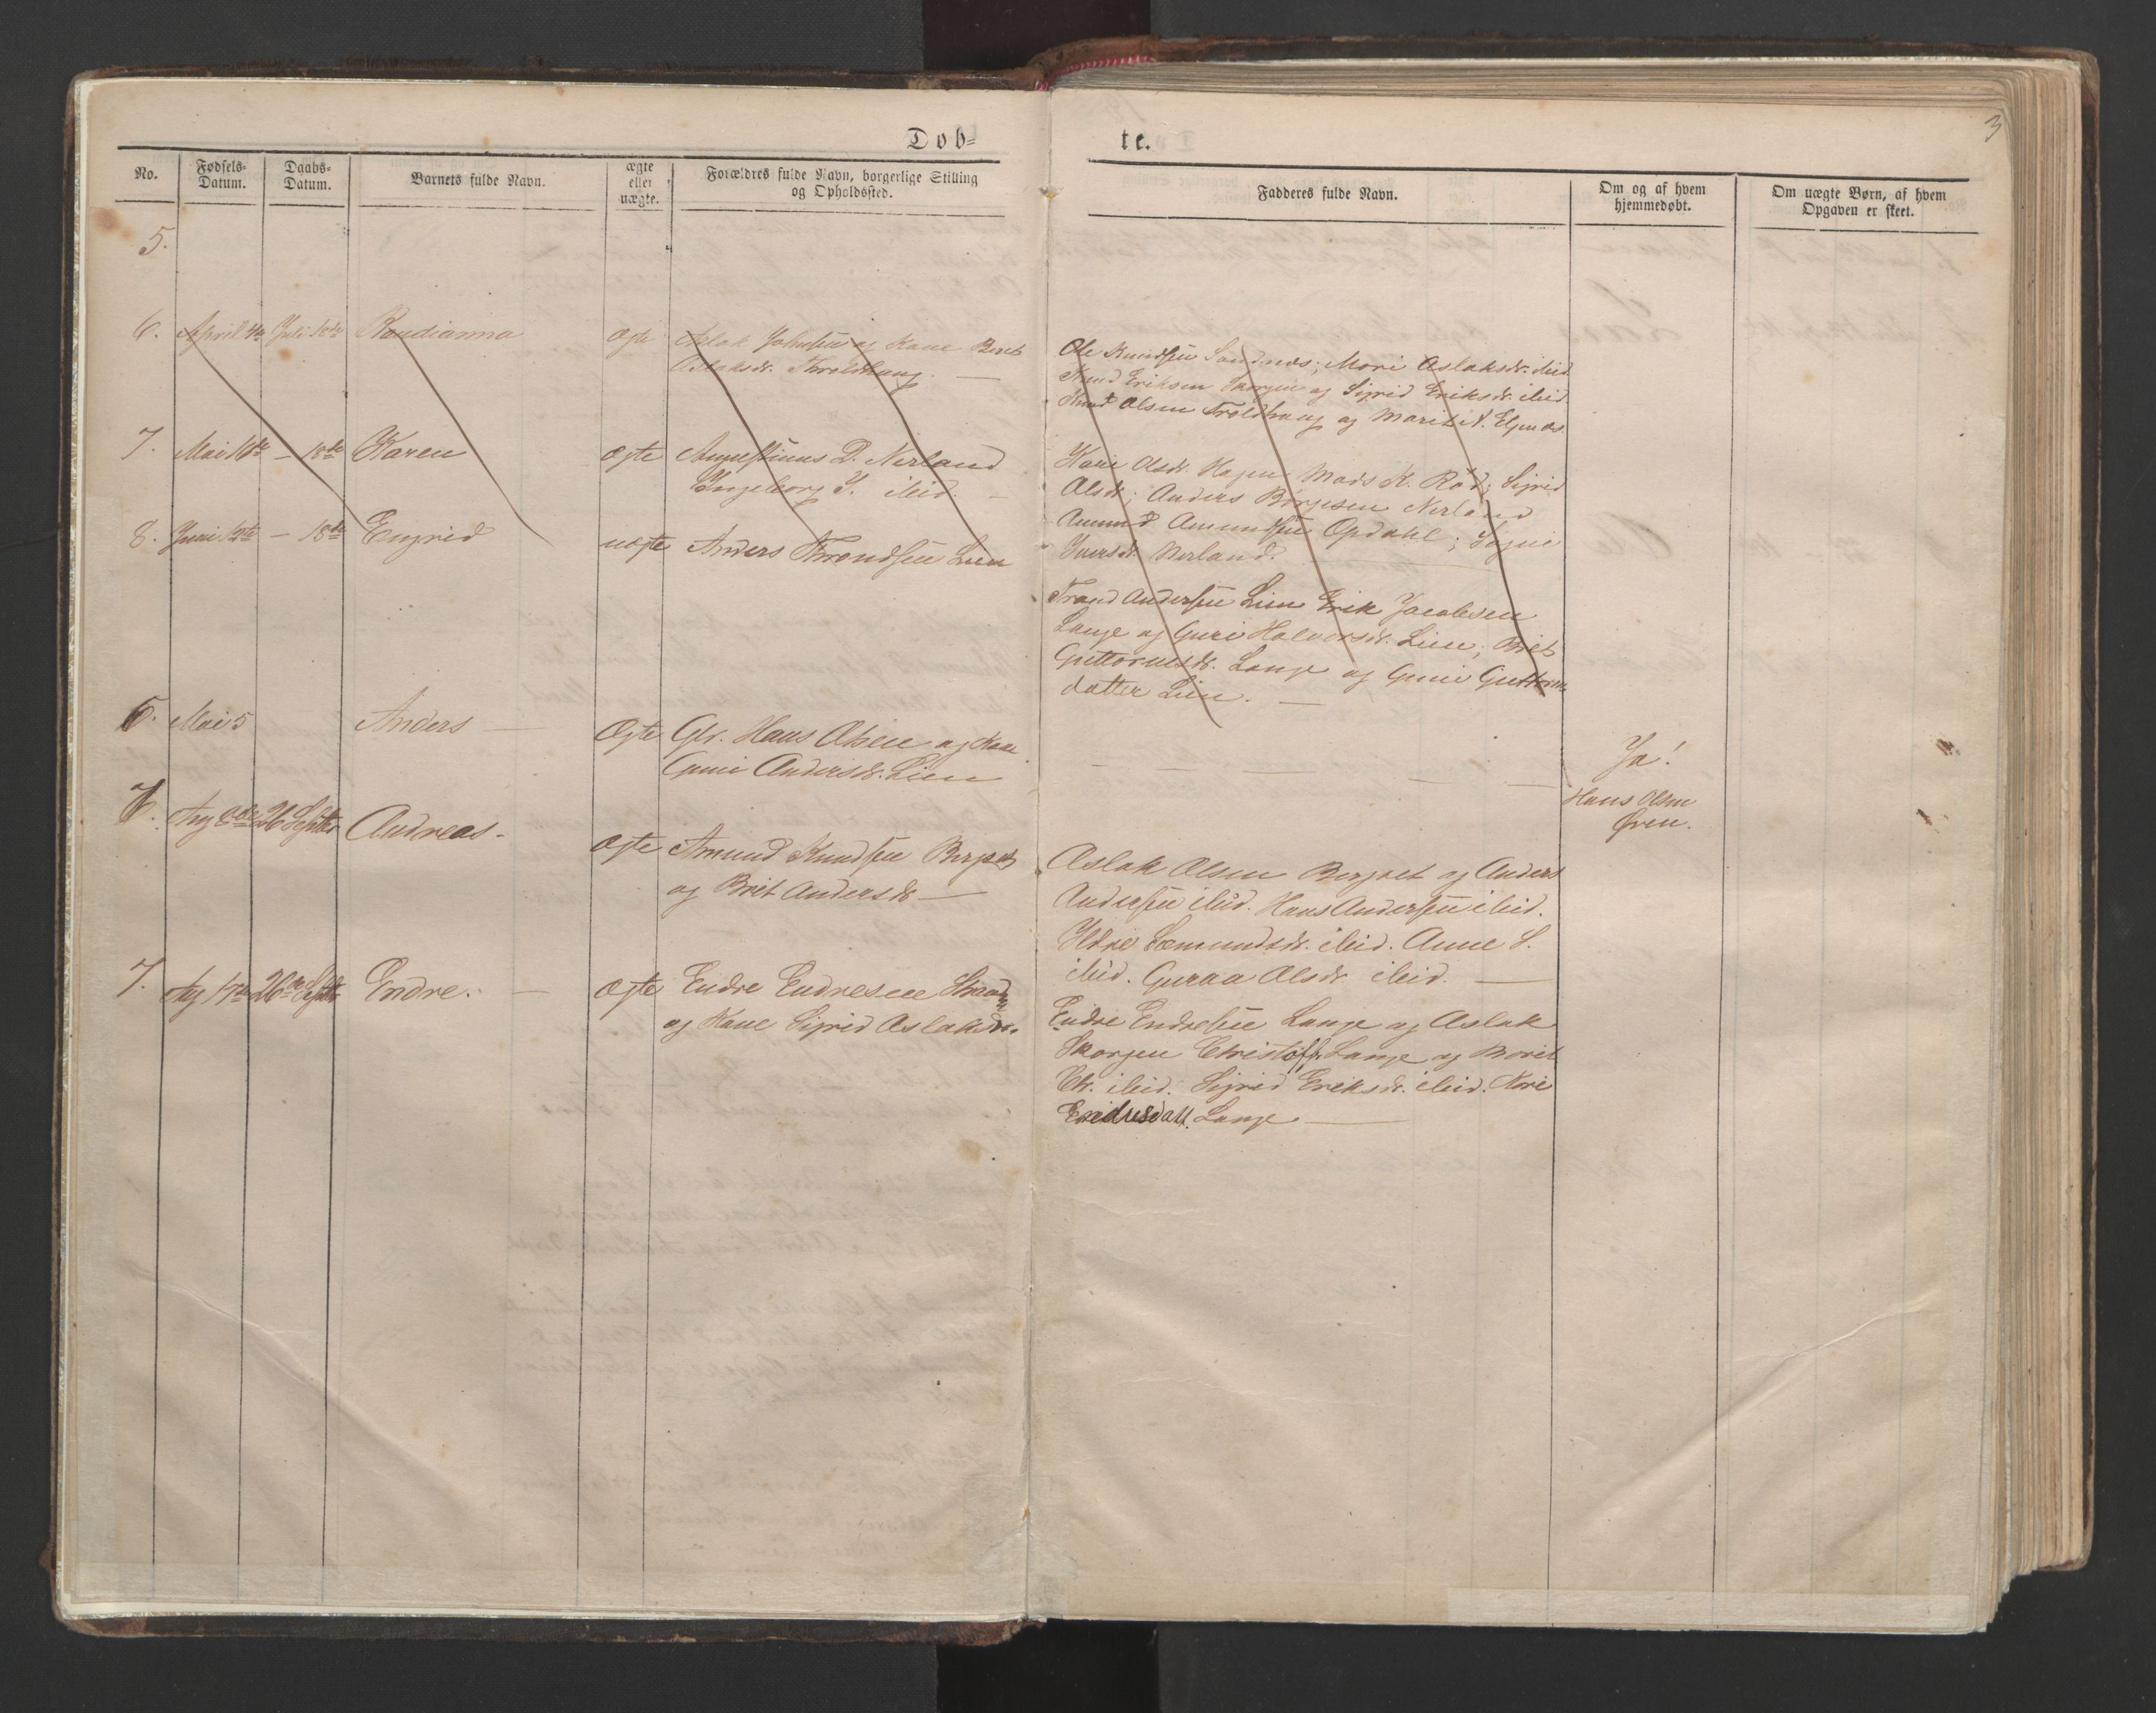 Døb-
te.
3
No.
Fødsels-
Datum.
Daabs-
Datum.
Barnets fulde Navn.
ægte
eller
uægte.
Forældres fulde Navn, borgerlige Stilling
og Opholdssted.
Fadderes fulde Navn.
Om og af hvem
hjemmedøbt.
Om uægte Børn, af hvem
Opgaven er skeet.
5.
6. April 4de Juli 18de Randianna ægte Aslak Johnsen og Kone Beret
Aslaksdr. Troldhaug. —
Ole Knudsen Sandnæs; Mari Aslaksdr. ibid
Knud Eriksen Skorgen og Sigrid Eriksdr. ibid
Knud Olsen Troldhaug og Marit A. Elgenæs.
7. Mai — 18de Karen ægte Augustinus D. Nerland
Ingeborg I. ibid. —
Kari Olsdr. Hagen Mads K. Rød; Sigrid
Olsdr; Anders Børgesen Nerland
Amund Amundsen Opdahl;
Iversdr. Nerland.
8. Juni — 18de Engrid uægte Anders Throndsen Lien
Trond Andersen Lien Erik Jacobsen
Lange og Guri Halvorsdr. Lien; Brit
Guttormsdr. Lange og Guri Guttorms
datter Lien. —
6. Mai 5 Anders — ægte Gbr. Hans Olsen og Kone
Guri Andersdr. Lien
Ja!
Hans Olsen
Øren.
Aug 26 Septbr Andreas - ægte Amund Knudsen Berget
og Brit Andersdr —
Aslak Olsen Berget og Anders
Andersen ibid. Hans Andersen ibid.
Sæmundsdr. ibid. Anne S.
ibid. Guraa Olsdr ibid. —
7. Aug 17de 26de Septbr Endre. — ægte Endre Endresen
og Kone Sigrid Aslaksdr.
Endre Endresen Lange og Aslak
Skorgen Christoff. Lange og Marit
Chr. ibid. Sigrid Eriksdr. ibid. Kari
Endresdatt. Lange —